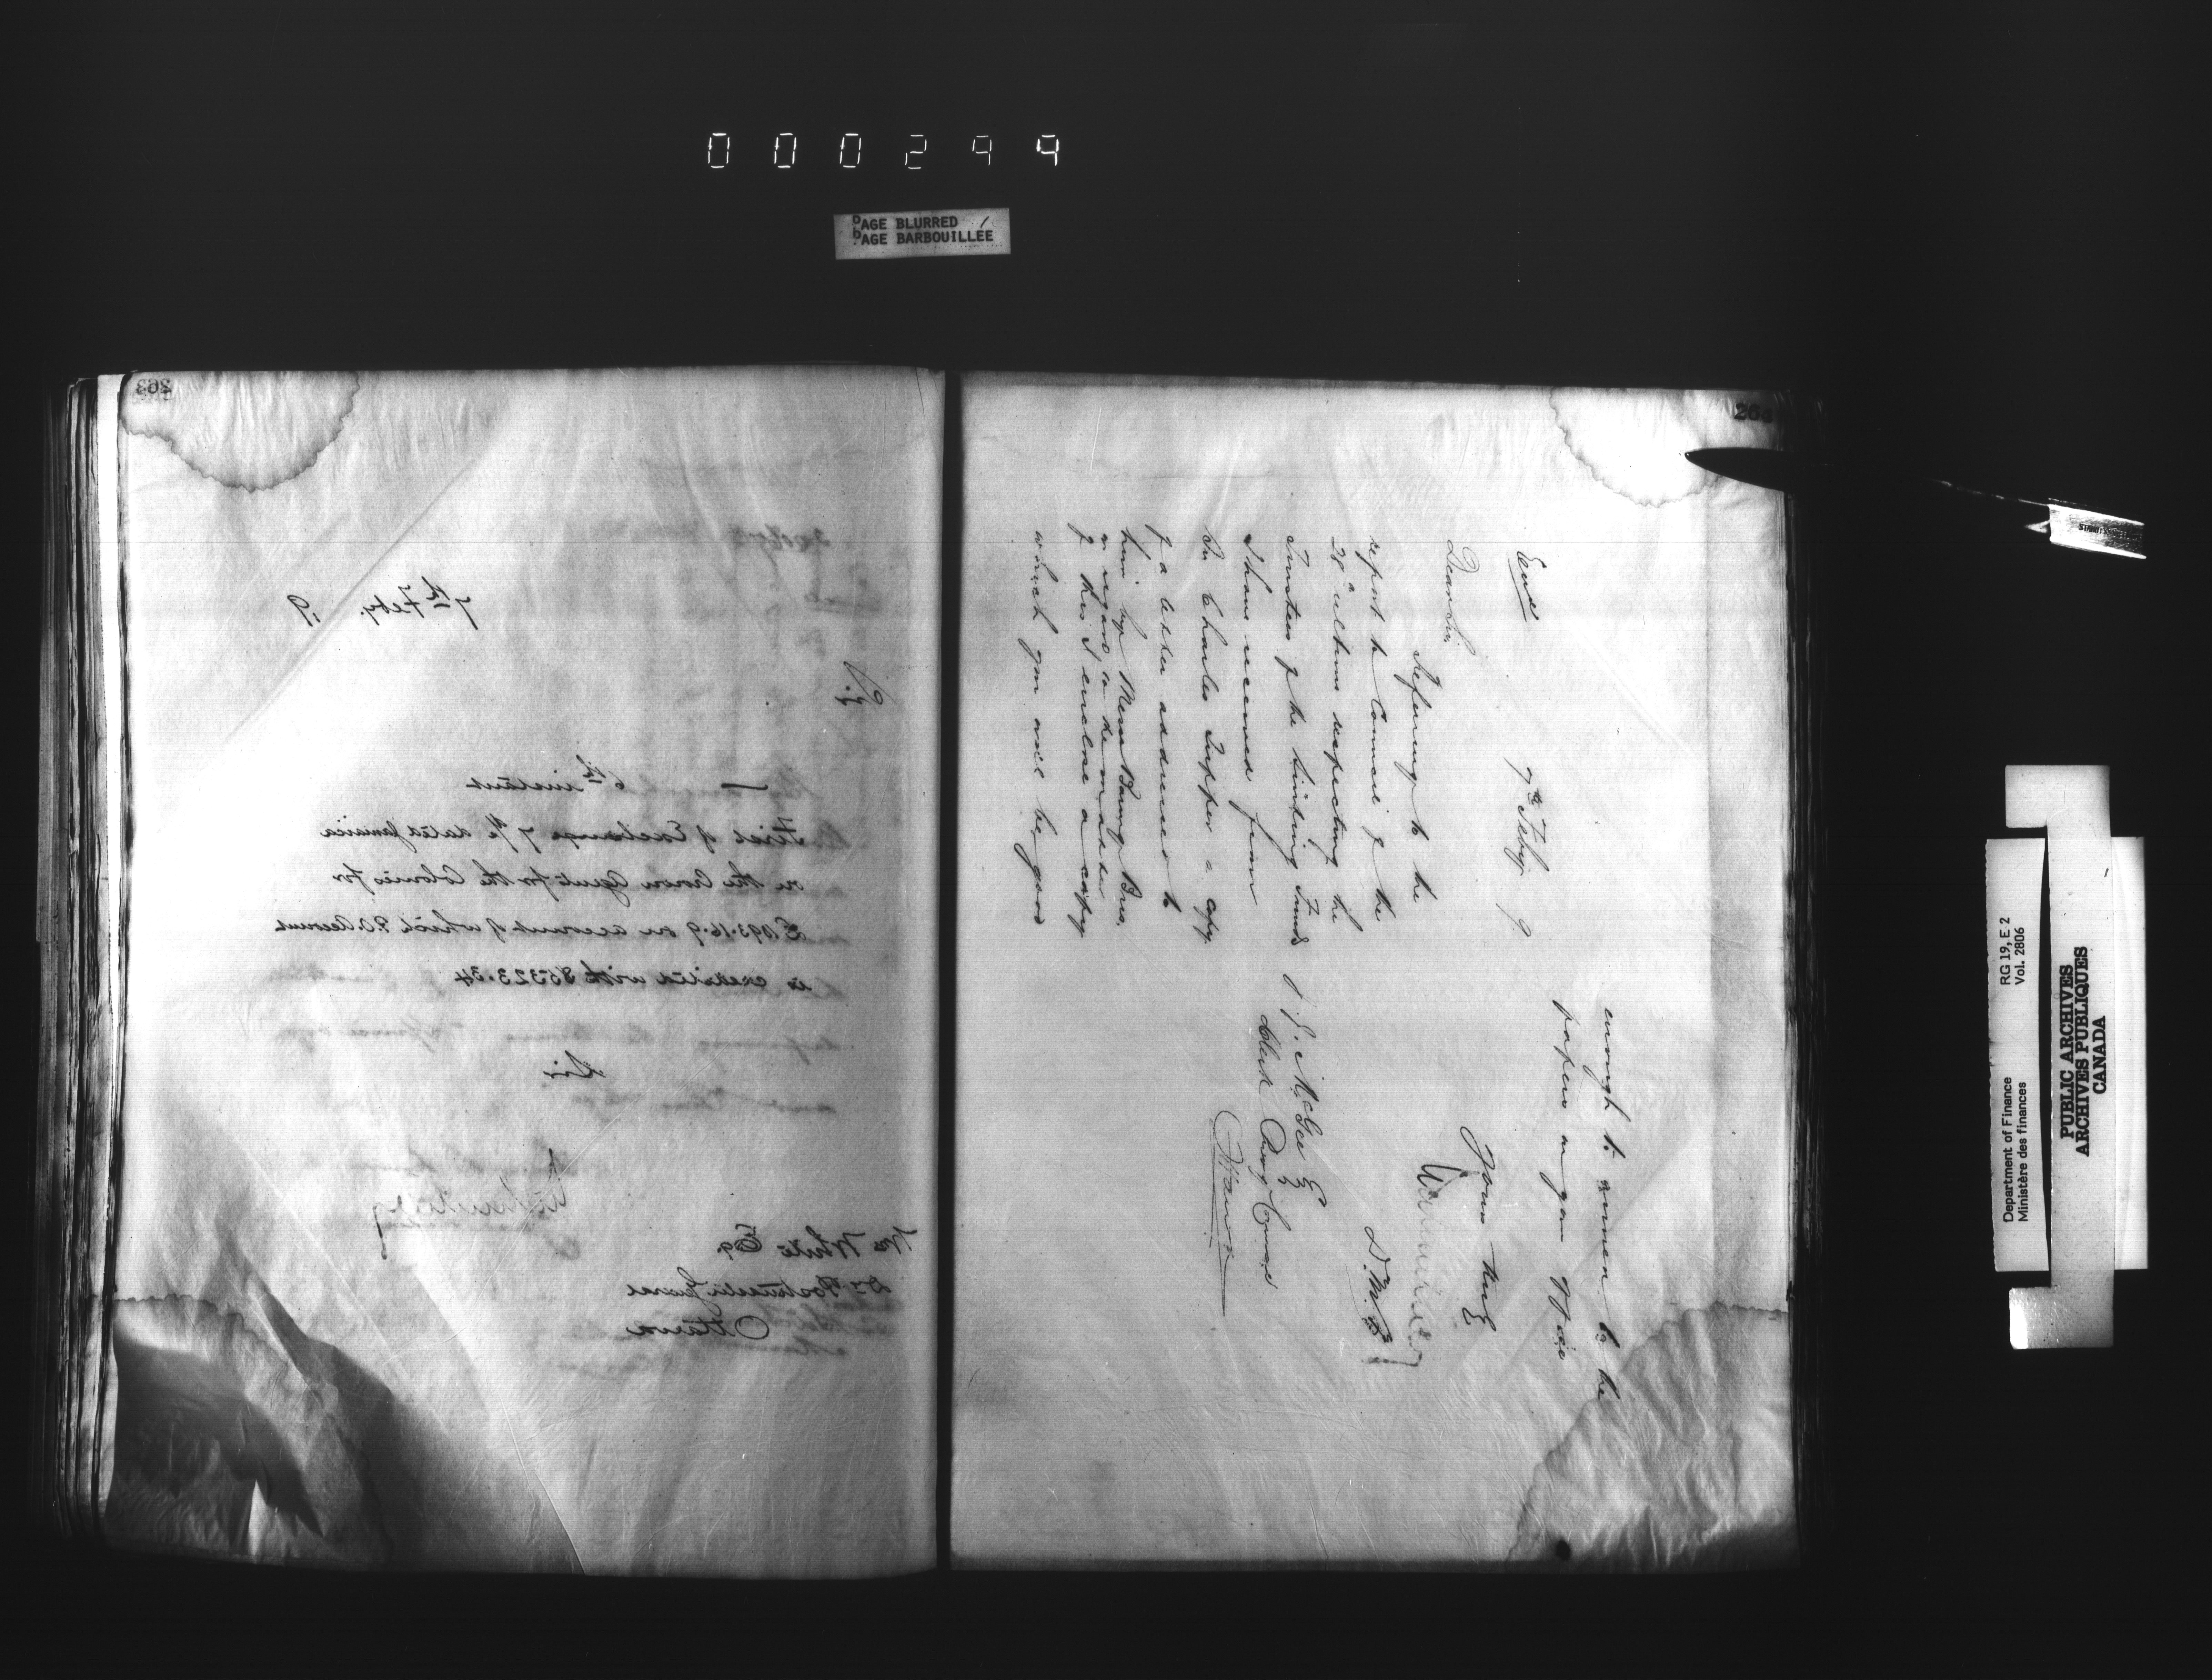 000299
PAGE BLURRED
PAGE BARBOUILLÉE
263
7th Feby. 9
Sir
6th instant
First of Exchange 7/e dated Jamaica
on the Crown Agents for the Colonies for
£1093.16.9 on account of which P.O. Account
is credited with $5323.34
Sir
Wm White Esq.
Dy Postmaster General
Ottawa
264
Encl
7th Feby. 9
Dear Sir,
Referring to the
report to Council of the
28th ultimo respecting the
Trustees of the Sinking Funds
I have received from
Sir Charles Tupper a copy
of a letter addressed to
him by Messrs Baring Bros.
in regard to the matter
of this I enclose a copy
which you will be good
enough to annex to the
papers in your office
Yours truly
D.M.F.
J.J. McGee Esq
Clerk Privy Council
Ottawa
STAINLESS
Department of Finance
Ministère des finances
RG 19, E 2
Vol. 2806
PUBLIC ARCHIVES
ARCHIVES PUBLIQUES
CANADA